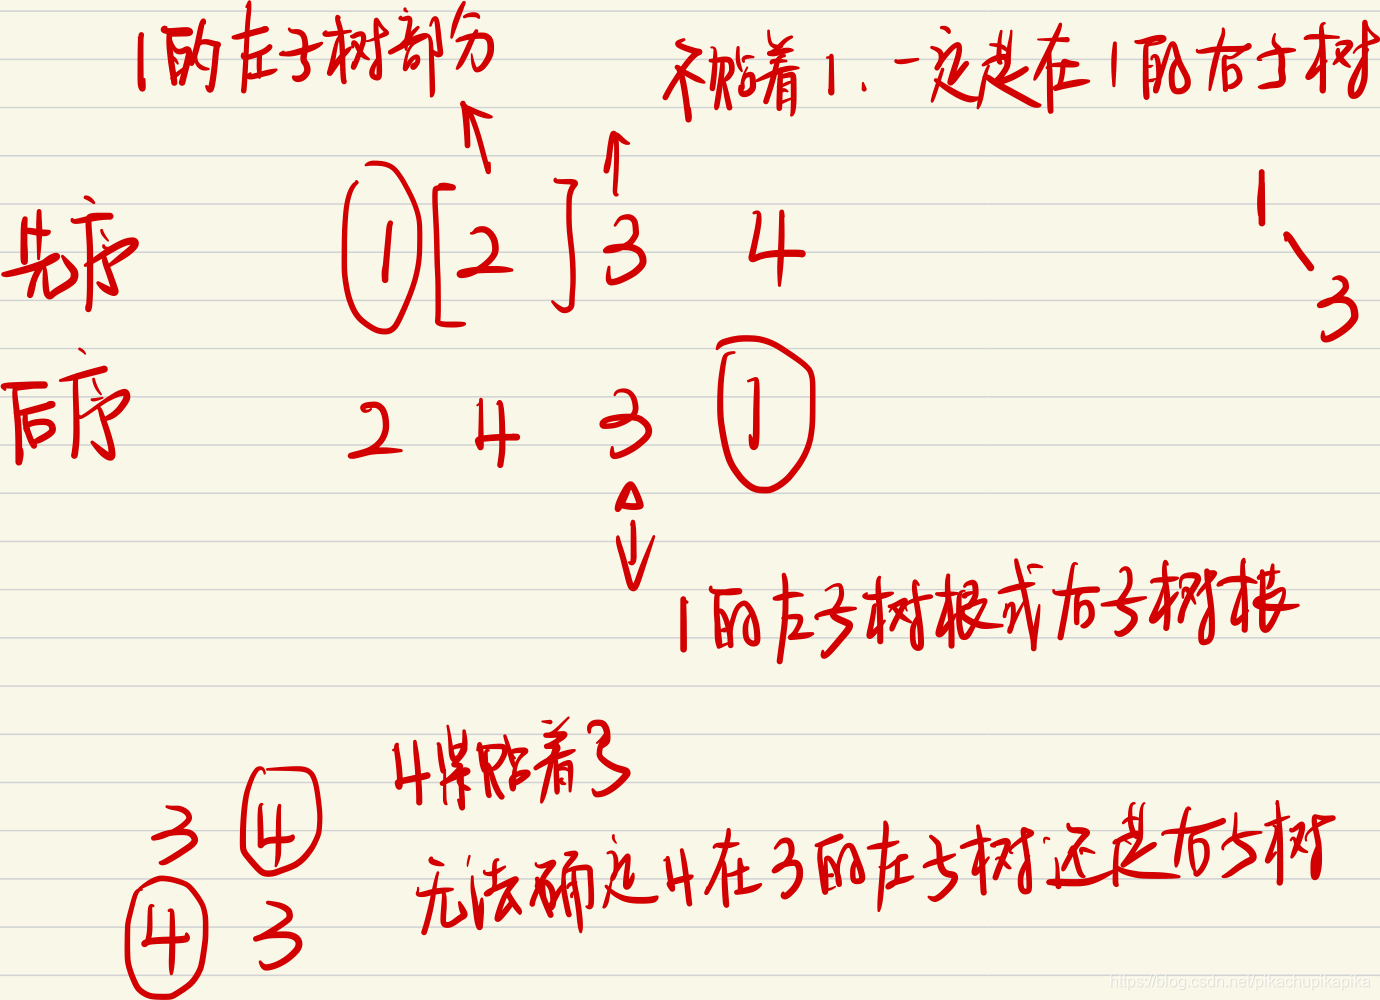 1的左子树部分
不贴着1.一定是在1的右子树
先序 1 [2] 3 4
1
3
后序 2 4 3 1
1的左子树根或右子树根
4紧贴着3
3 4
无法确定4在3的左子树还是右子树
4 3
https://blog.csdn.net/pikachupikapika